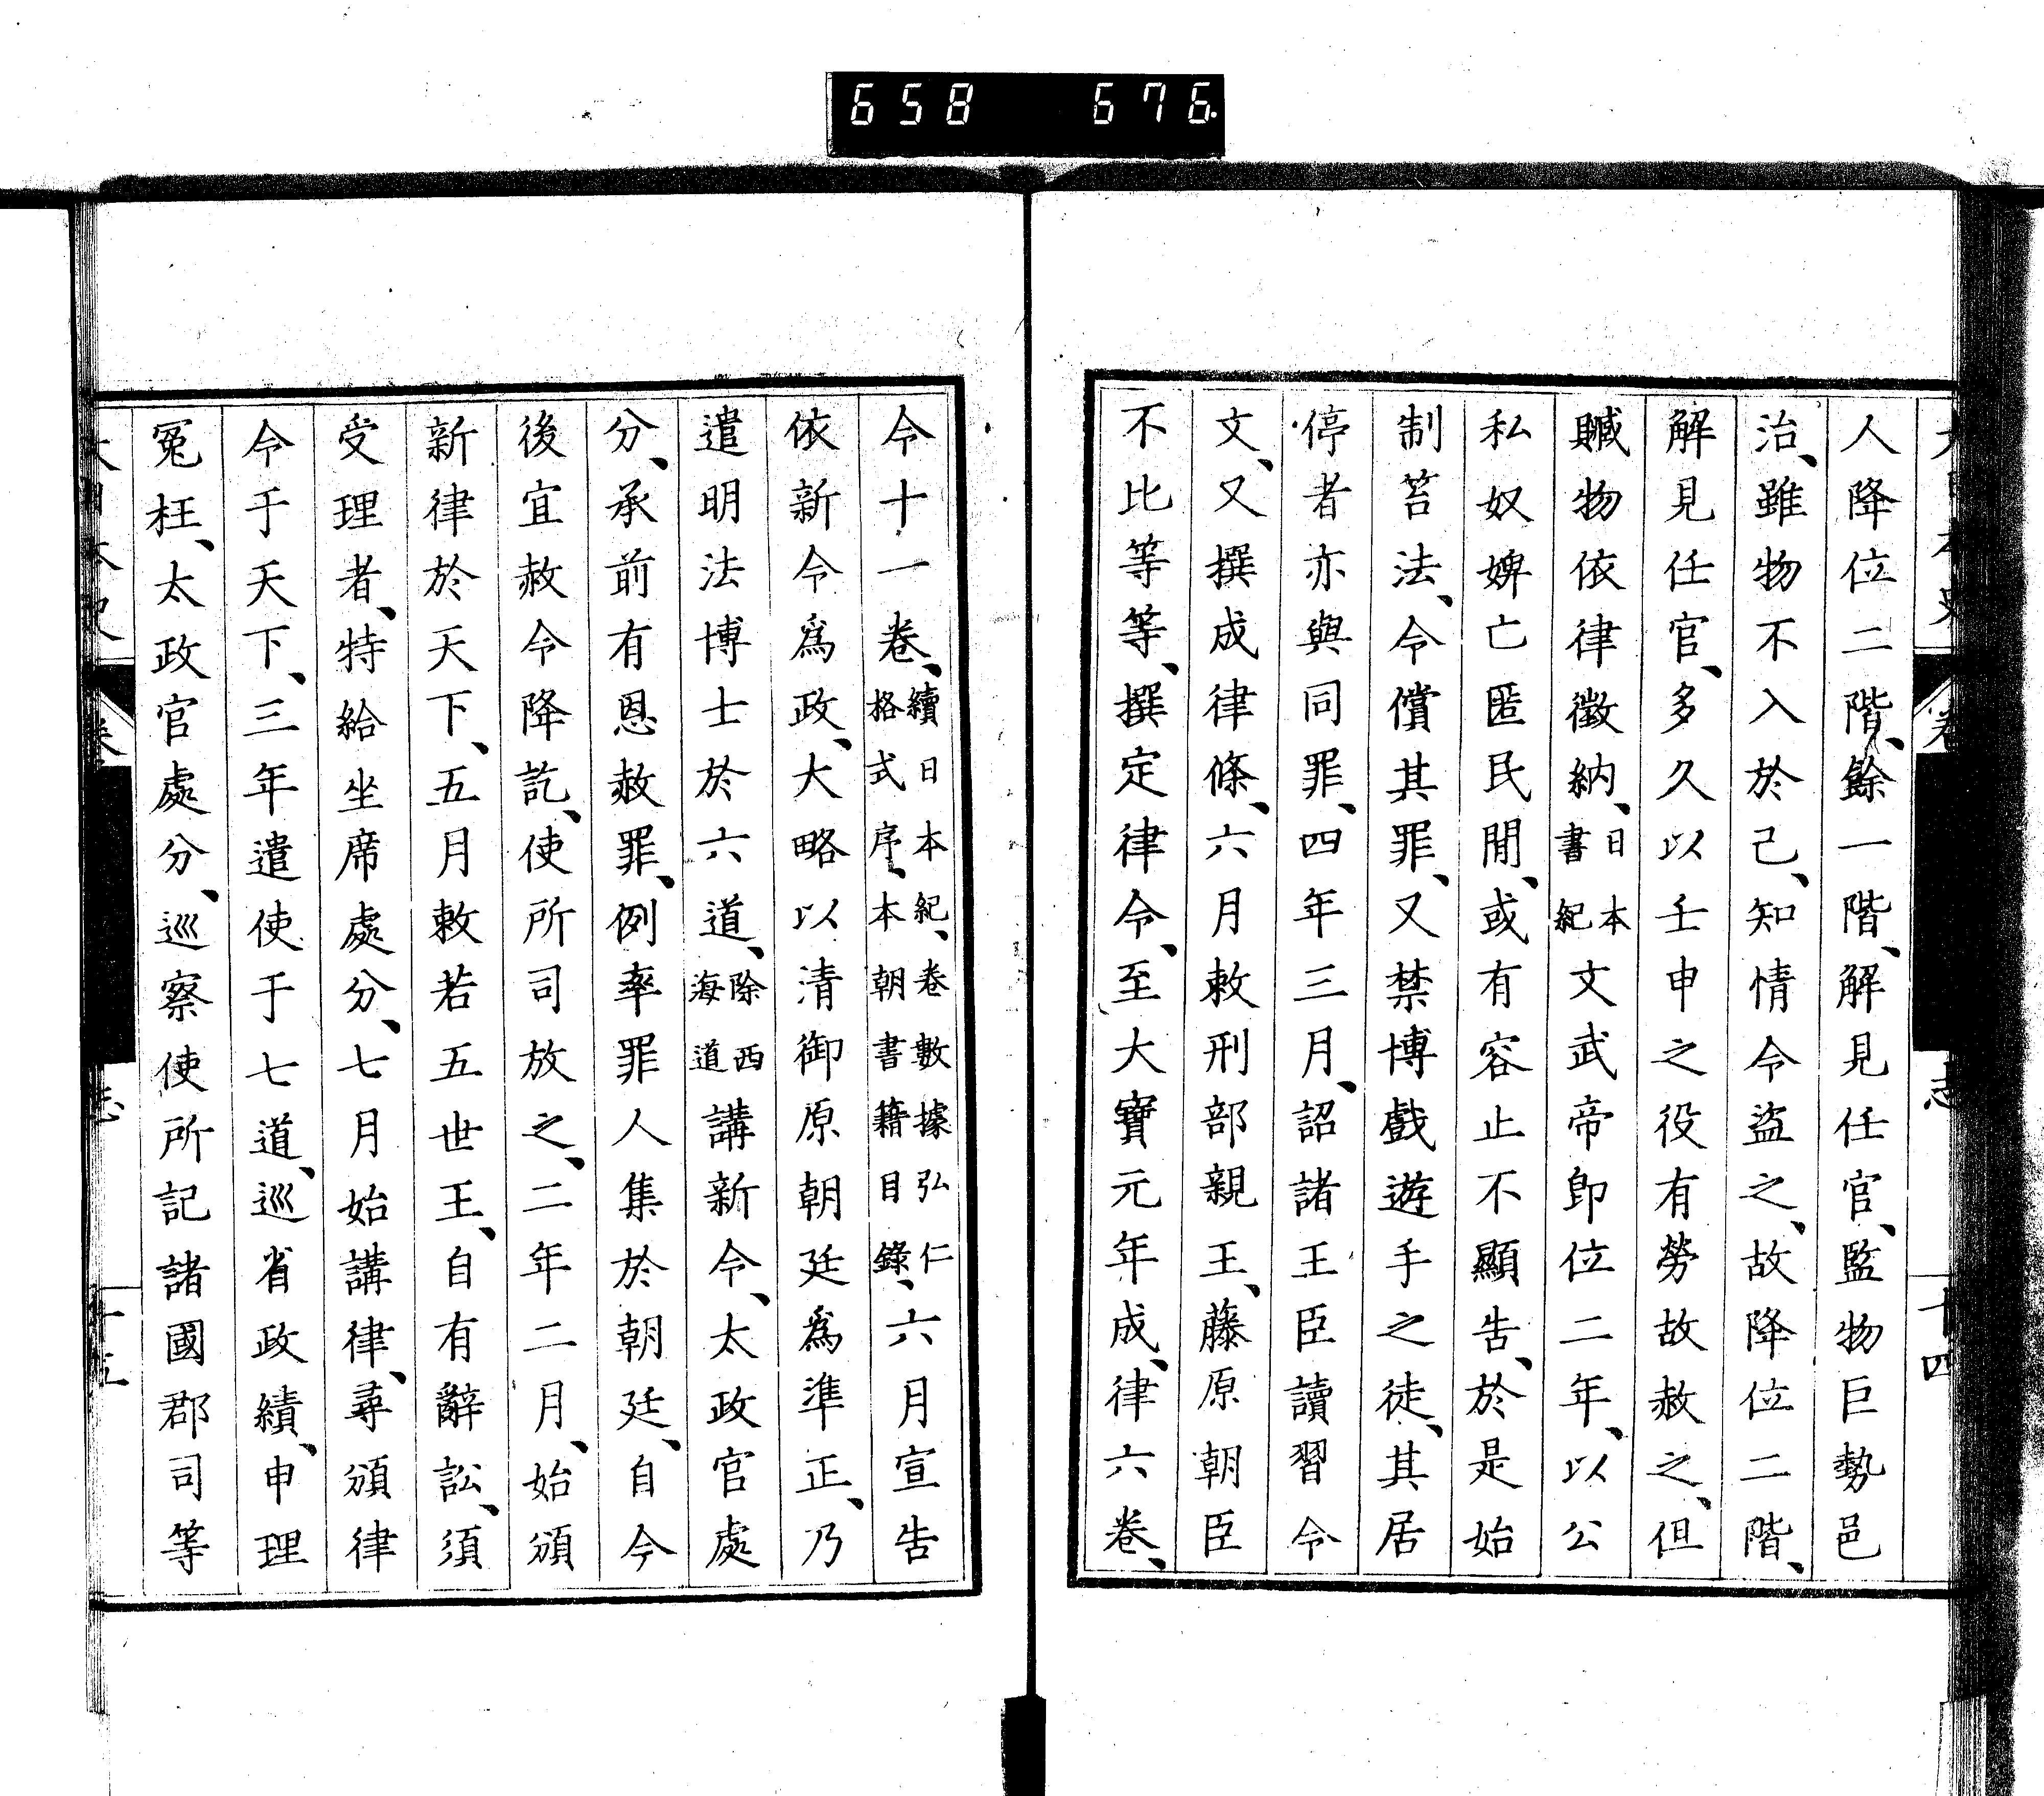 658 676
人降位二階、餘一階、解見任官、監物巨勢邑
治、雖物不入於己、知情令盜之、故降位二階、
解見任官、多久以壬申之役有勞故赦之、但
贓物依律徵納、日本書紀文武帝卽位二年、以公
私奴婢亡匿民閒、或有容止不顯告、於是始
制笞法、令償其罪、又禁博戲遊手之徒、其居
停者亦與同罪、四年三月、詔諸王臣讀習令
文、又撰成律條、六月敕刑部親王、藤原朝臣
不比等等、撰定律令、至大寶元年成、律六卷、
令十一卷、續日本紀、卷數據弘仁格式序、本朝書籍目錄、六月宣告
依新令爲政、大略以清御原朝廷爲準正、乃
遣明法博士於六道、除西海道講新令、太政官處
分、承前有恩赦罪、例率罪人集於朝廷、自今
後宜赦令降訖、使所司放之、二年二月、始頒
新律於天下、五月敕若五世王、自有辭訟、須
受理者、特給坐席處分、七月始講律、尋頒律
令于天下、三年遣使于七道、巡省政績、申理
冤枉、太政官處分、巡察使所記諸國郡司等